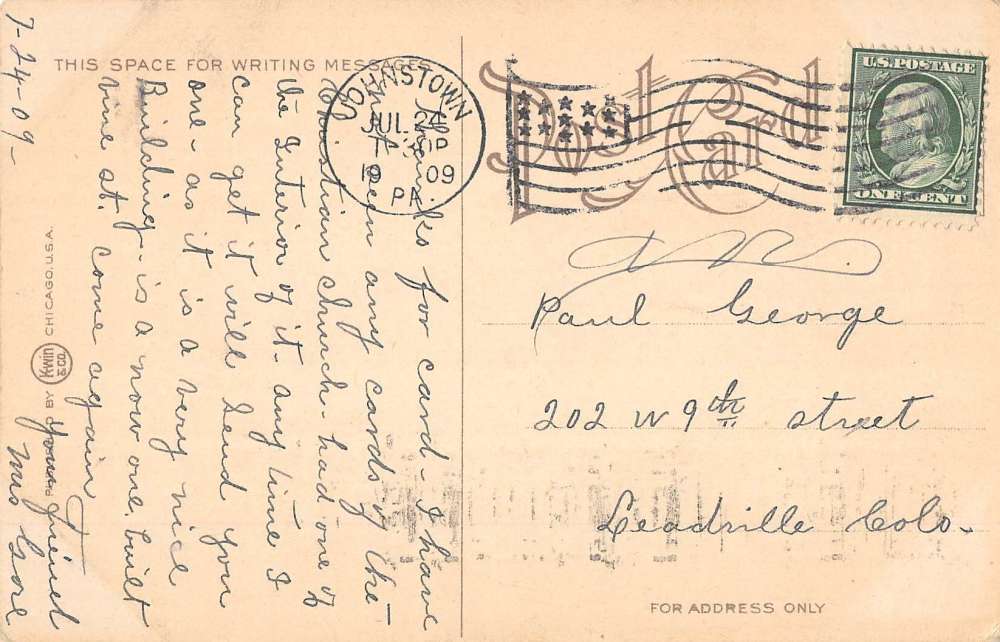 7-24-09-
THIS SPACE FOR WRITING MESSAGES
Thanks for card - I have
seen any cards of the
Christian church - had one of
the Interior of it - any time I
can get it will send you
one - as it is a very nice
Building - is a new one, built
vine st. Come again
Your friend
Mrs Gore
CHICAGO. U.S.A.
Kwin & CO.
BY
JOHNSTOWN
JUL 24
1909
PA.
Post Card
U.S. POSTAGE
ONE CENT
Paul George
202 W 9th street
Leadville Colo.
FOR ADDRESS ONLY